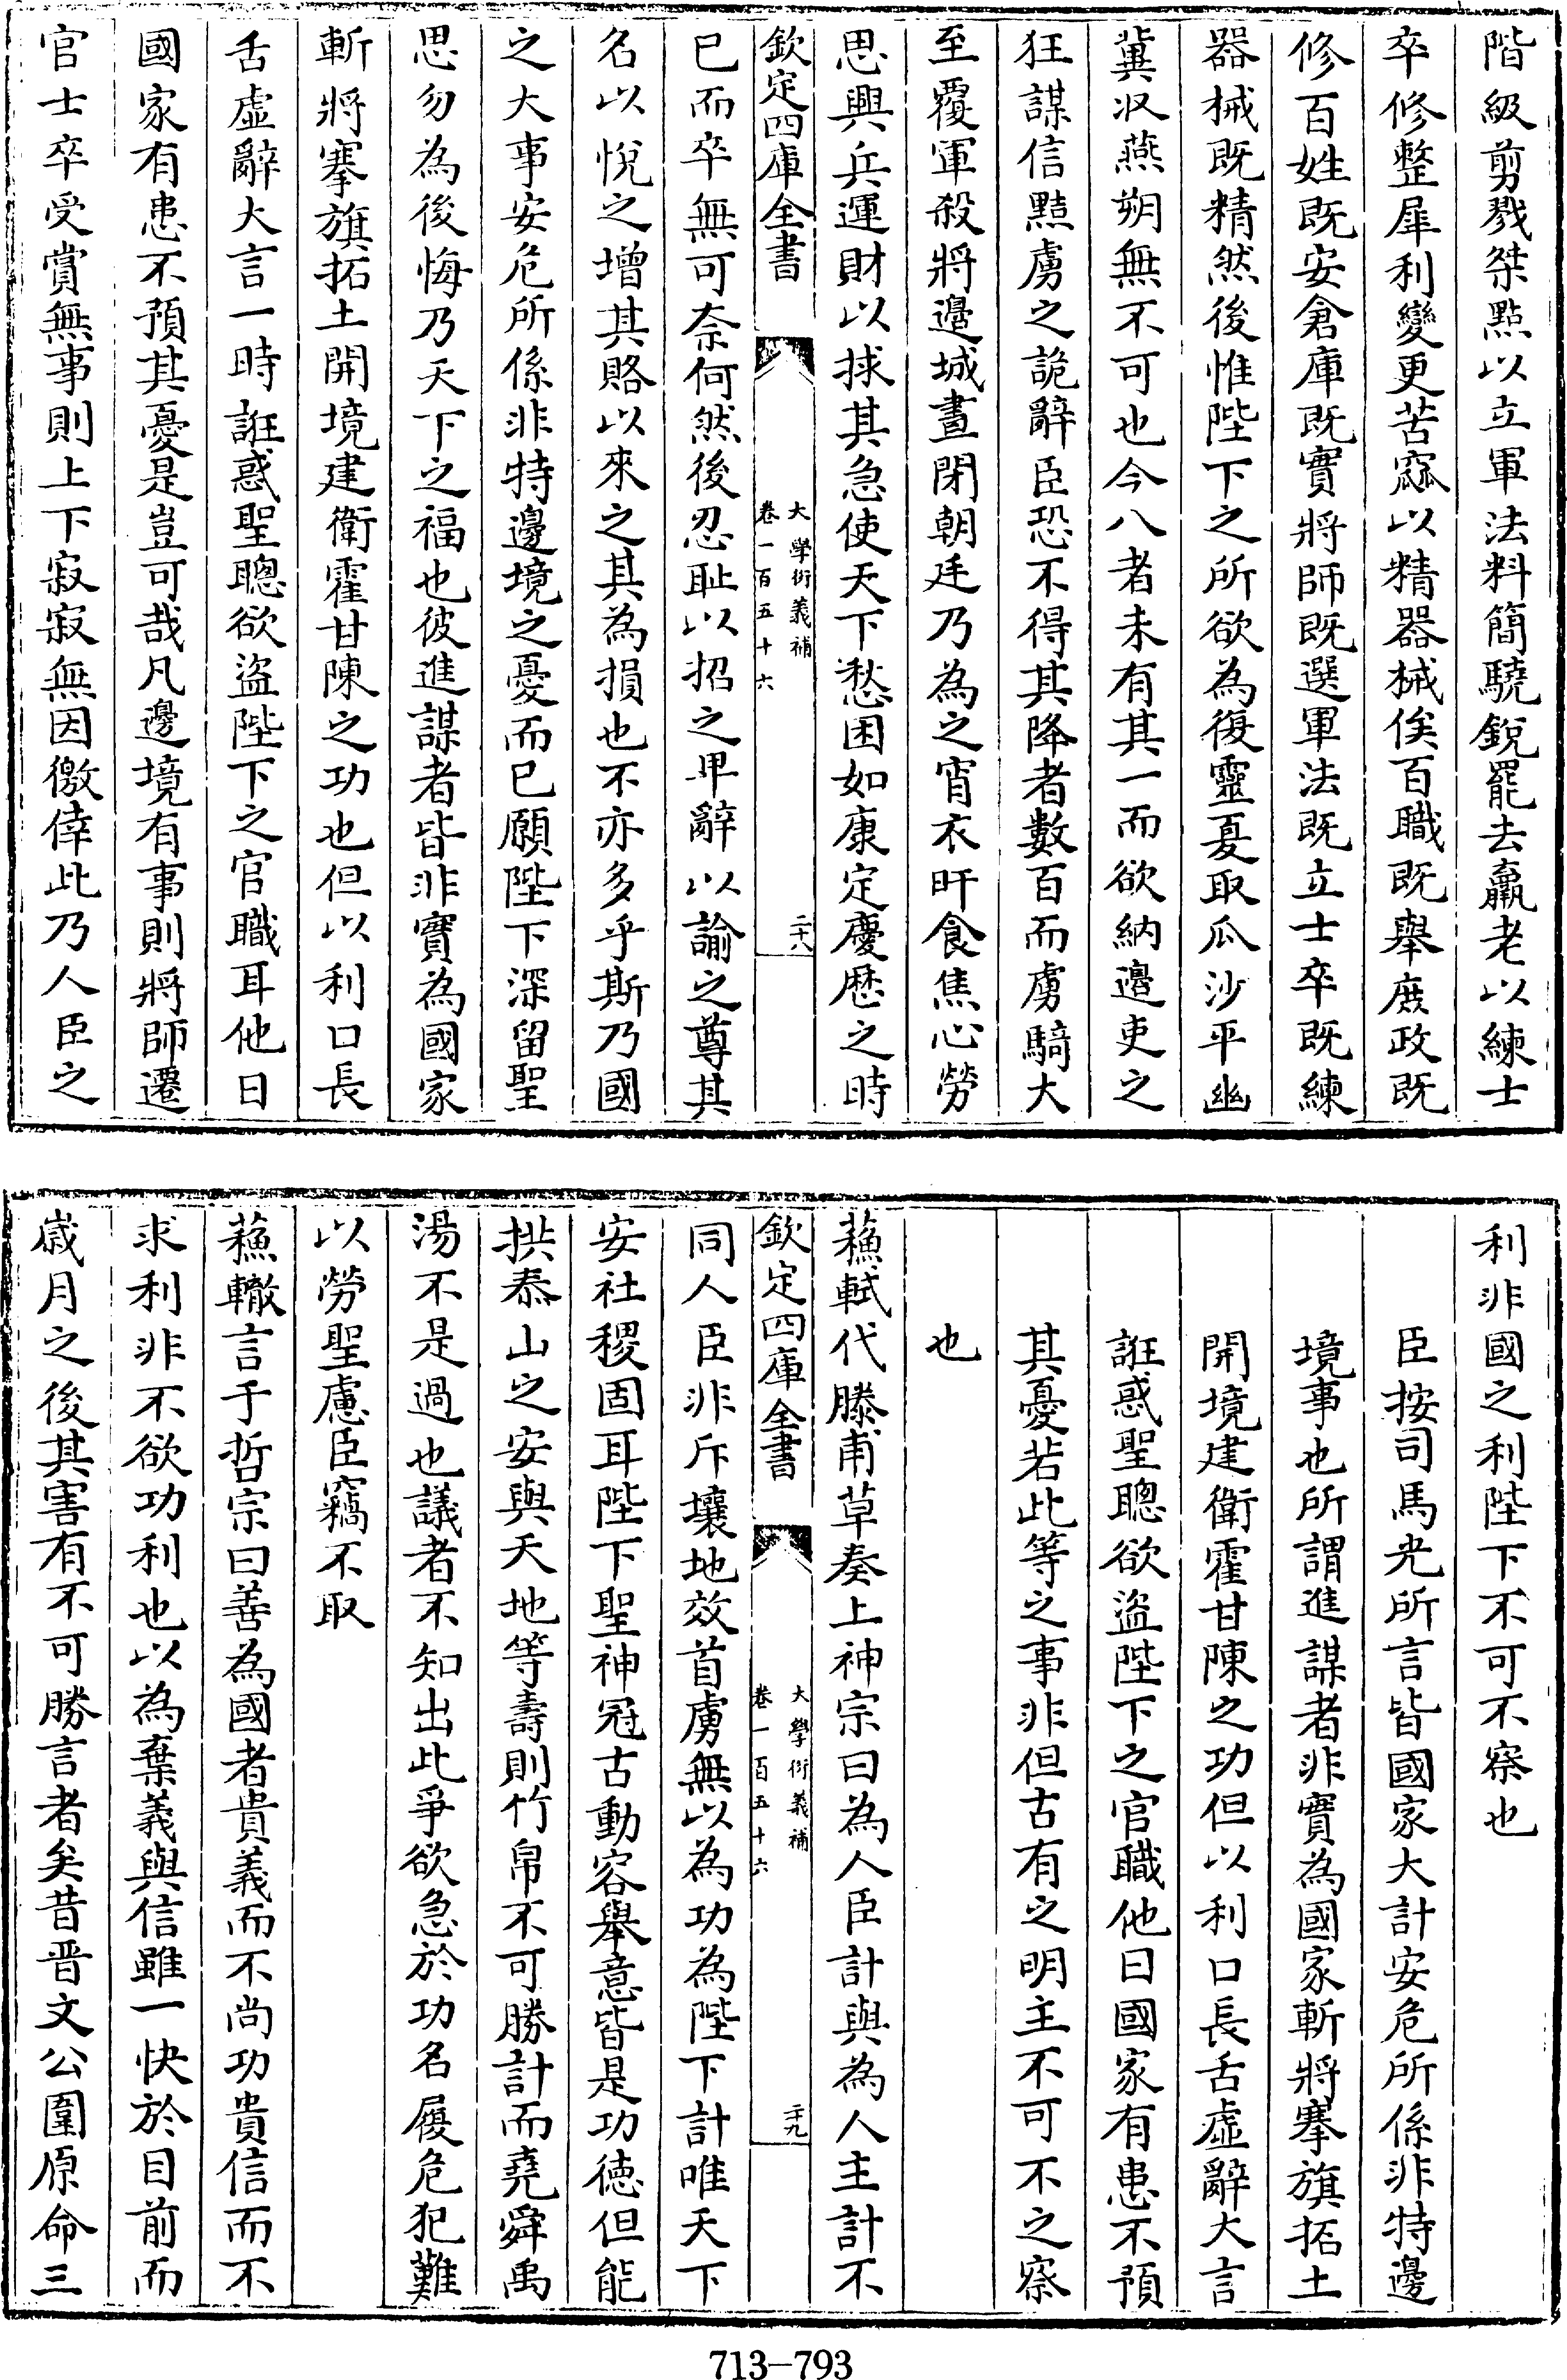 階級剪戮桀㸃以立軍法料簡驍銳罷去羸老以練士
卒修整犀利變更苦窳以精器械俟百職既舉庶政既
修百姓既安倉庫既實將師既選軍法既立士卒既練
器械既精然後惟陛下之所欲為復靈夏取瓜沙平幽
冀收燕朔無不可也今八者未有其一而欲納邊吏之
狂謀信黠虜之詭辭臣恐不得其降者數百而虜騎大
至覆軍殺將邊城晝閉朝廷乃為之宵衣旰食焦心勞
思興兵運財以捄其急使天下愁困如康定慶厯之時
欽定四庫全書
大學衍義補
卷一百五十六
二十八
已而卒無可奈何然後忍恥以招之卑辭以諭之尊其
名以悅之增其賂以來之其為損也不亦多乎斯乃國
之大事安危所係非特邊境之憂而已願陛下深留聖
思勿為後悔乃天下之福也彼進謀者皆非實為國家
斬將搴旗拓土開境建衛霍甘陳之功也但以利口長
舌虛辭大言一時誑惑聖聰欲盜陛下之官職耳他日
國家有患不預其憂是豈可哉凡邊境有事則將師遷
官士卒受賞無事則上下寂寂無因徼倖此乃人臣之
利非國之利陛下不可不察也
臣按司馬光所言皆國家大計安危所係非特邊
境事也所謂進謀者非實為國家斬將搴旗拓土
開境建衛霍甘陳之功但以利口長舌虛辭大言
誑惑聖聰欲盜陛下之官職他日國家有患不預
其憂若此等之事非但古有之明主不可不之察
也
蘇軾代滕甫草奏上神宗曰為人臣計與為人主計不
欽定四庫全書
大學衍義補
卷一百五十六
二十九
同人臣非斥壤地效首虜無以為功為陛下計唯天下
安社稷固耳陛下聖神冠古動容舉意皆是功德但能
拱泰山之安與天地等壽則竹帛不可勝計而堯舜禹
湯不是過也議者不知出此爭欲急於功名履危犯難
以勞聖慮臣竊不取
蘇轍言于哲宗曰善為國者貴義而不尚功貴信而不
求利非不欲功利也以為棄義與信雖一快於目前而
歲月之後其害有不可勝言者矣昔晉文公圍原命三
713-793